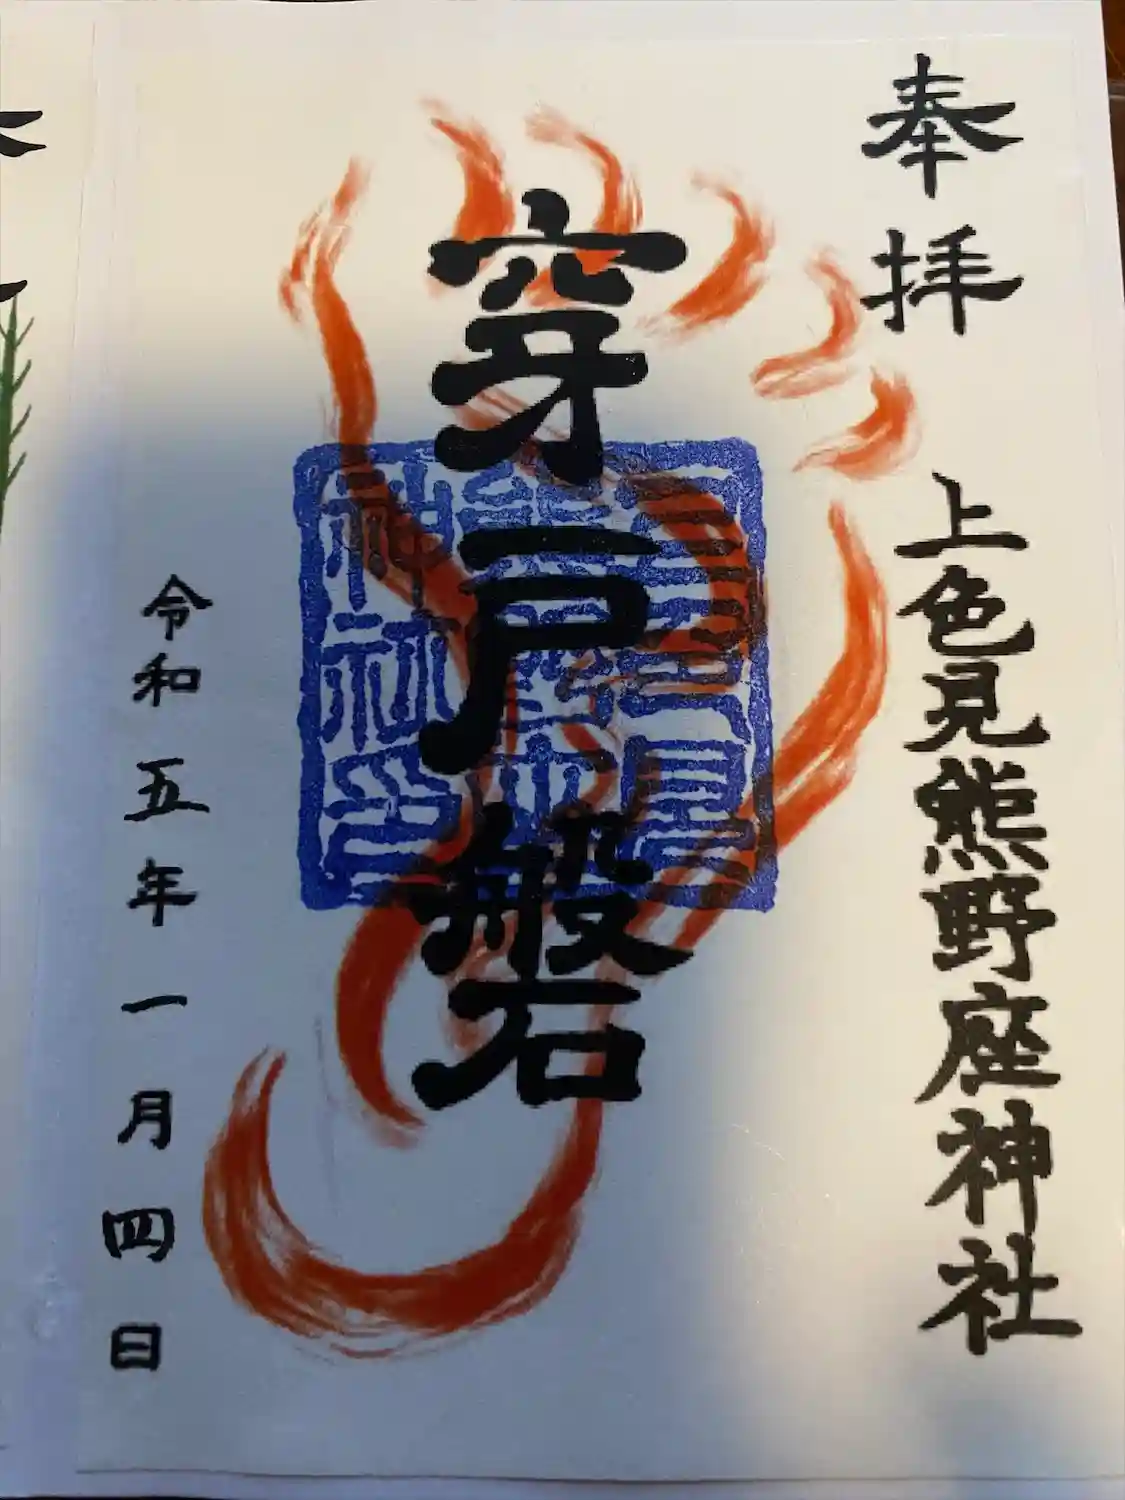 奉拝
上色見熊野座神社
穿戸磐
令和五年一月四日